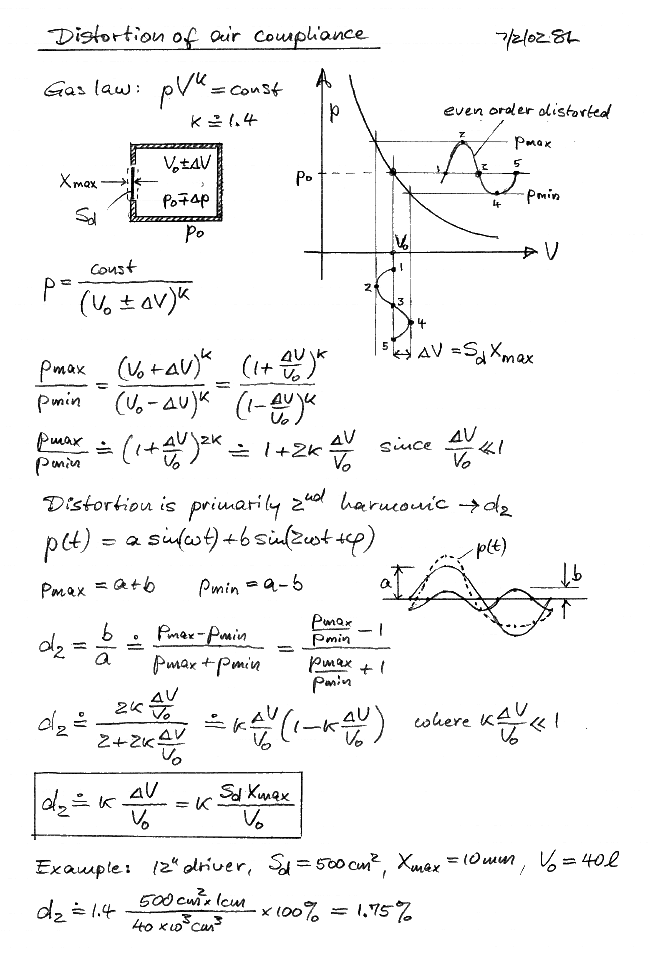 Distortion of air compliance 7/2/02 SL
Gas law: pV^k = const
k ≐ 1.4
even order distorted
p
pmax
2
1
2
5
4
pmin
po
Vo ± ΔV
Xmax
po ∓ Δp
Sd
po
Vo
V
1
2
3
4
5
ΔV = Sd Xmax
p = const / (Vo ± ΔV)^k
pmax/pmin = (Vo + ΔV)^k / (Vo - ΔV)^k = (1 + ΔV/Vo)^k / (1 - ΔV/Vo)^k
pmax/pmin ≐ (1 + ΔV/Vo)^2k ≐ 1 + 2k ΔV/Vo since ΔV/Vo ≪ 1
Distortion is primarily 2nd harmonic → d2
p(t) = a sin(ωt) + b sin(2ωt + φ)
p(t)
a
b
pmax = a+b pmin = a-b
d2 = b/a ≐ (pmax - pmin) / (pmax + pmin) = (pmax/pmin - 1) / (pmax/pmin + 1)
d2 ≐ 2k ΔV/Vo / (2 + 2k ΔV/Vo) ≐ k ΔV/Vo (1 - k ΔV/Vo) where k ΔV/Vo ≪ 1
d2 ≐ k ΔV/Vo = k Sd Xmax/Vo
Example: 12" driver, Sd = 500 cm², Xmax = 10 mm, Vo = 40 l
d2 ≐ 1.4 500 cm² x 1cm / 40 x 10³ cm³ x 100% = 1.75%